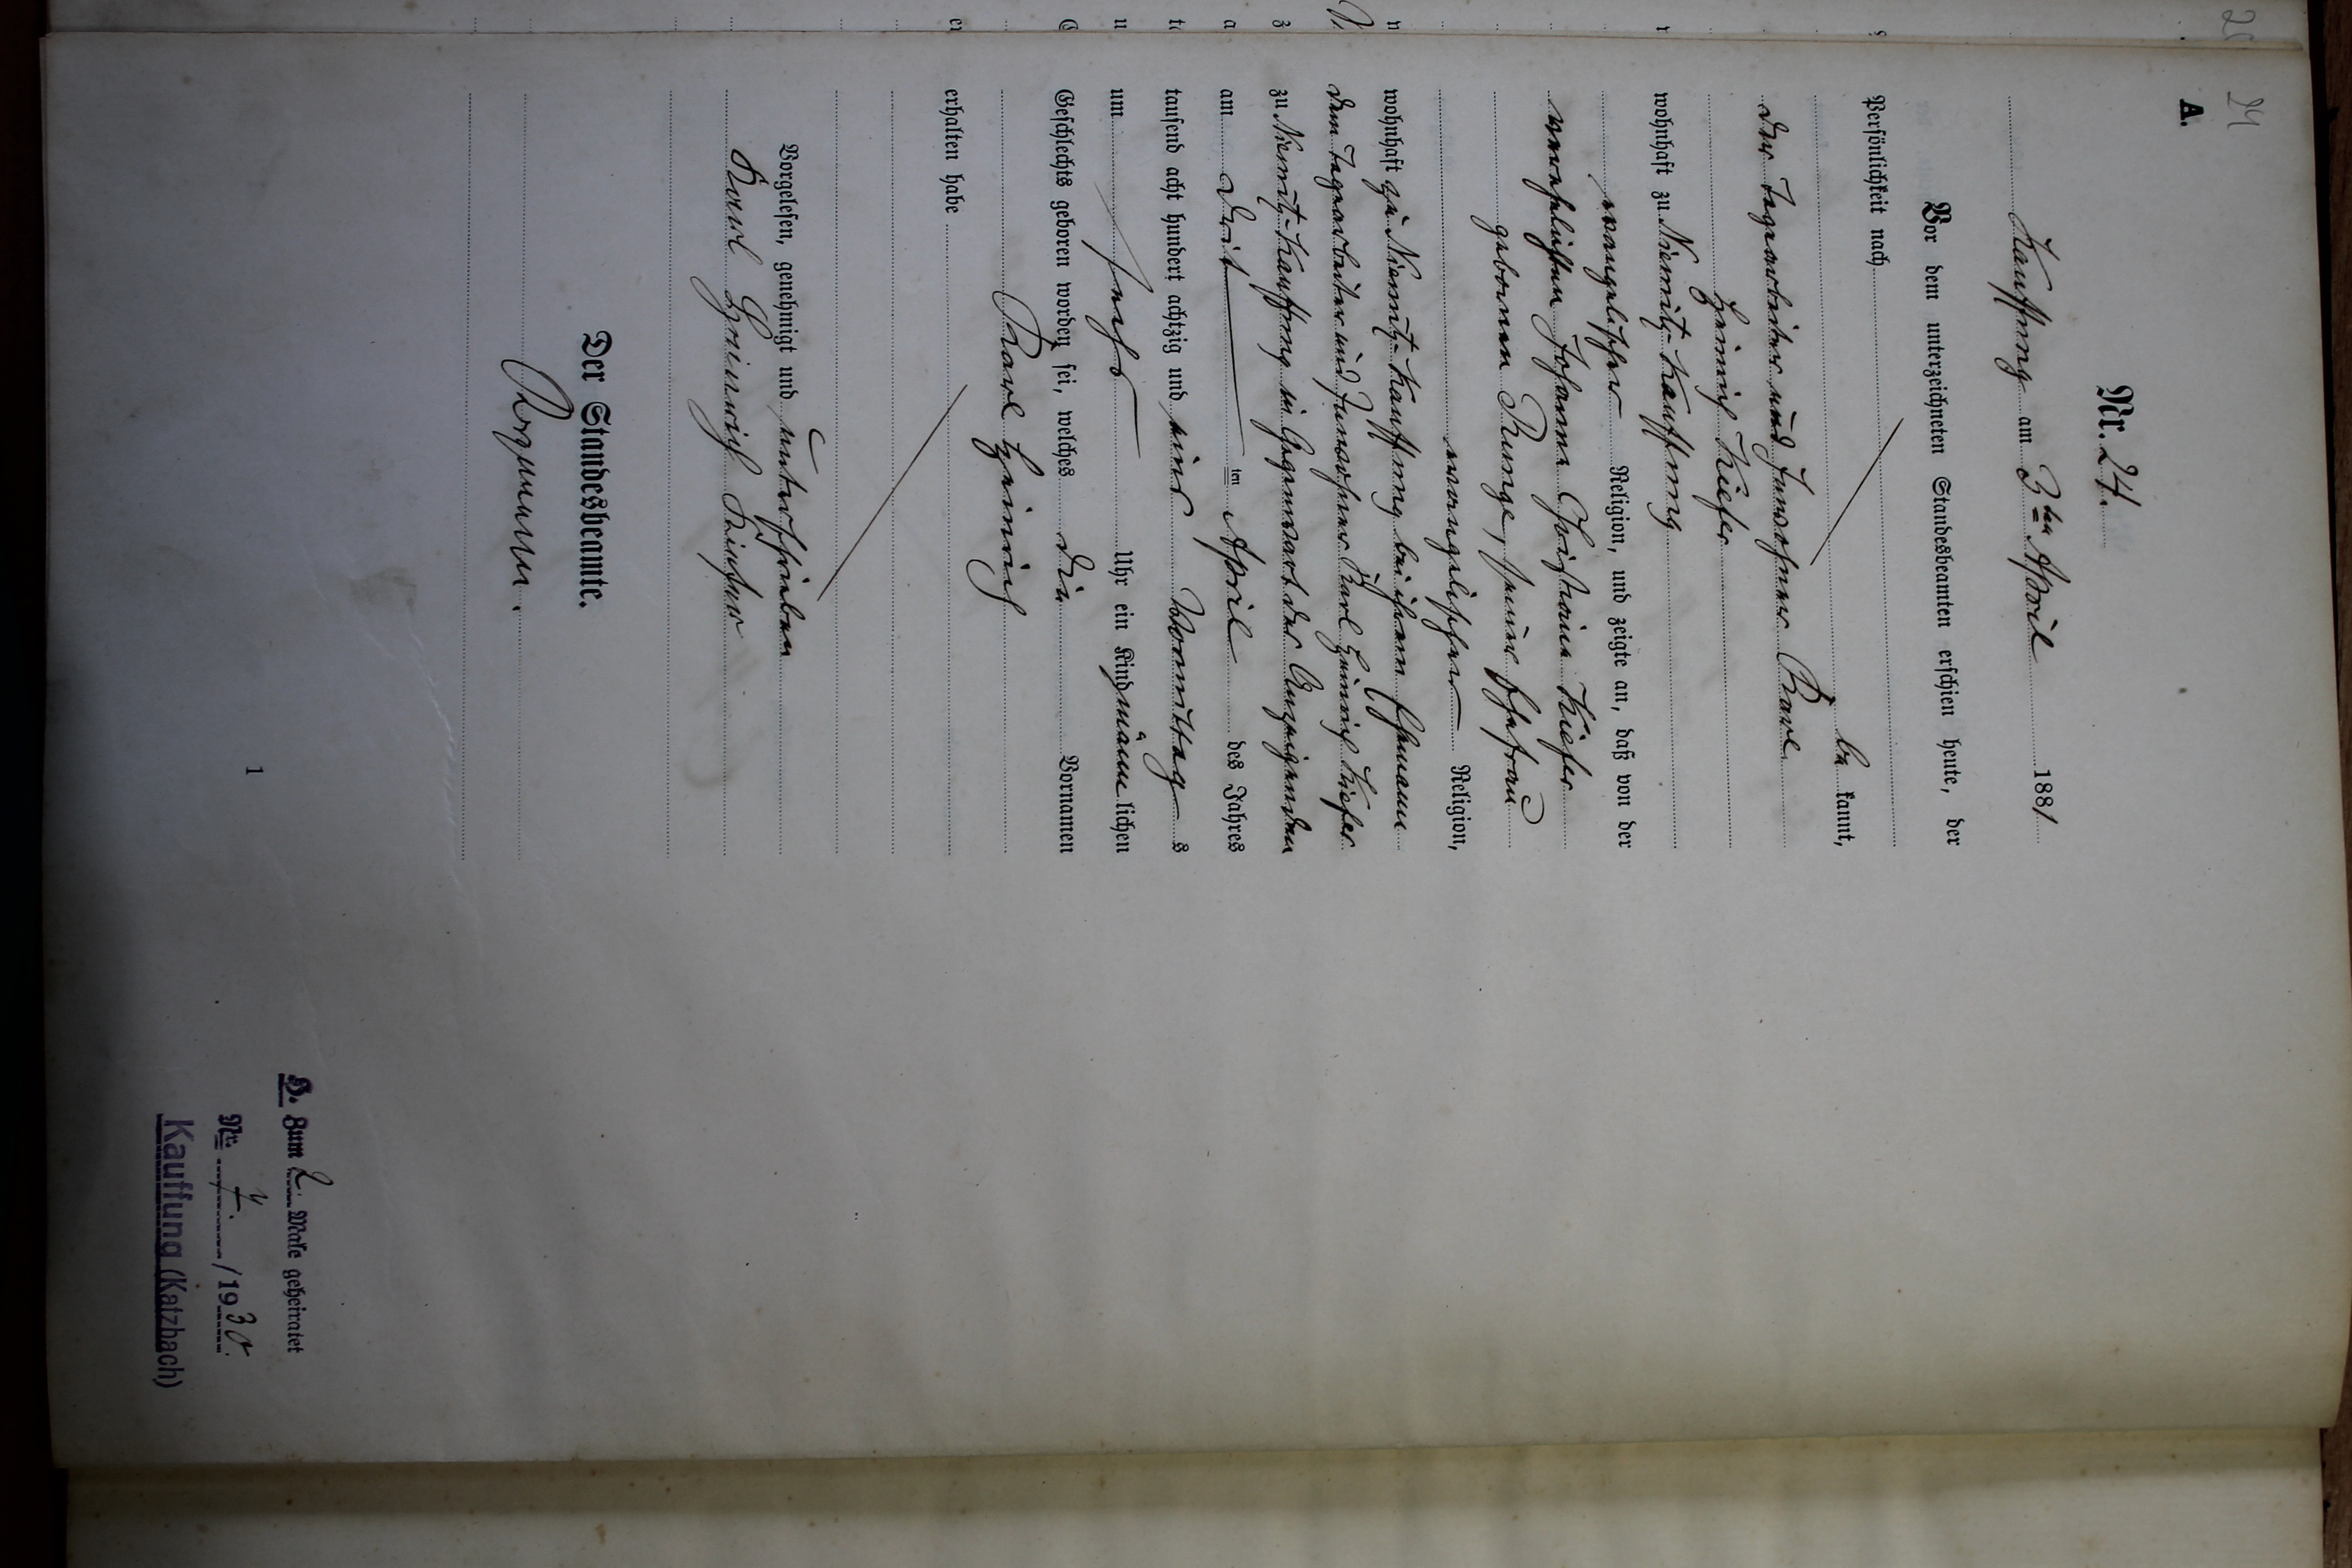 24
A.
Nr. 24.
Kauffung am 3ten April 1881
Vor dem unterzeichneten Standesbeamten erschien heute, der
Persönlichkeit nach
be kannt,
der Tagearbeiter und Inwohner Karl
Heinrich Kiefer
wohnhaft zu Niemitz-Kauffung
evangelischer Religion, und zeigte an, daß von der
verehelichten Johanne Christiane Kiefer
geborenen Runge, seiner Ehefrau
evangelischer Religion,
wohnhaft zu Niemitz-Kauffung bei ihrem Ehemann
dem Tagearbeiter und Inwohner Karl Heinrich Kiefer
zu Niemitz-Kauffung in Gegenwart des Anzeigenden
am drit ten April des Jahres
tausend acht hundert achtzig und eins Vormittag s
um sechs Uhr ein Kind männ lichen
Geschlechts geboren worden sei, welches die Vornamen
Karl Heinrich
erhalten habe
Vorgelesen, genehmigt und unterschrieben
Karl Heinrich
Der Standesbeamte.
1
H. Zum 2. Male geheiratet
Nr. 4. / 1930.
Kauffung (Katzbach)